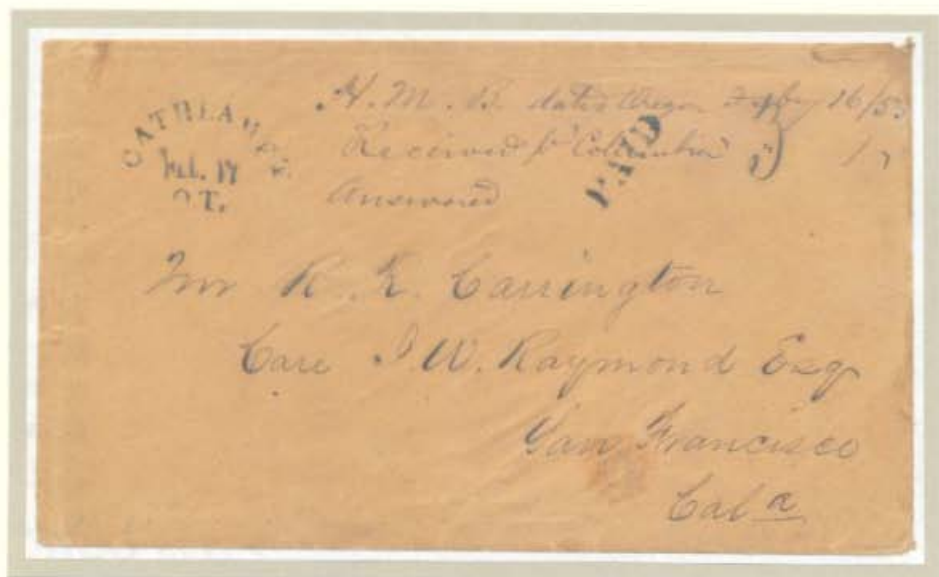 CATHLAMET
Feb. 17
O.T.
H. M. B. dated Oregon 16/53
Received pr Columbia
PAID
3
Answered
Mr R. E. Carrington
Care I. W. Raymond Esq
San Francisco
Cala